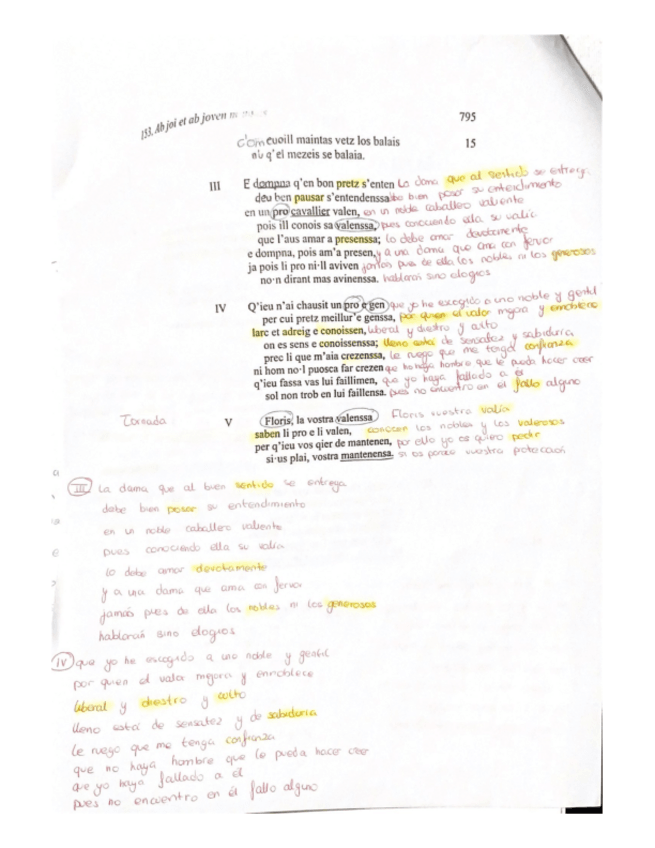 153. Ab joi et ab joven
795
c'om cuoill maintas vetz los balais 15
ab q'el mezeis se balaia.
III E dompna q'en bon pretz s'enten La dama que al sentido se entrega
deu ben pausar s'entendenssa debe bien posar su entendimiento
en un pro cavallier valen, en un noble caballero valiente
pois ill conois sa valenssa, pues conociendo ella su valía
que l'aus amar a presenssa; lo debe amar devotamente
e dompna, pois am'a presen, y a una dama que ama con fervor
ja pois li pro ni·ll aviven jamás pues de ella los nobles ni los generosos
no·n dirant mas avinenssa. hablarán sino elogios
IV Q'ieu n'ai chausit un pro e gen que yo he escogido a uno noble y gentil
per cui pretz meillur'e genssa, por quien el valor mejora y ennoblece
larc et adreig e conoissen, liberal y diestro y culto
on es sens e conoissenssa; lleno está de sensatez y sabiduría
prec li que m'aia crezenssa, le ruego que me tenga confianza
ni hom no·l puosca far crezen que no haya hombre que le pueda hacer creer
q'ieu fassa vas lui faillimen, que yo haya fallado a él
sol non trob en lui faillensa. pues no encuentro en él fallo alguno
Tornada V Floris, la vostra valenssa Floris vuestra valía
saben li pro e li valen, conocen los nobles y los valerosos
per q'ieu vos qier de mantenen, por ello yo os quiero pedir
si·us plai, vostra mantenensa. si os place vuestra protección
III La dama que al bien sentido se entrega
debe bien posar su entendimiento
en un noble caballero valiente
pues conociendo ella su valía
lo debe amar devotamente
y a una dama que ama con fervor
jamás pues de ella los nobles ni los generosos
hablarán sino elogios
IV que yo he escogido a uno noble y gentil
por quien el valor mejora y ennoblece
liberal y diestro y culto
lleno está de sensatez y de sabiduría
le ruego que me tenga confianza
que no haya hombre que le pueda hacer creer
que yo haya fallado a él
pues no encuentro en él fallo alguno